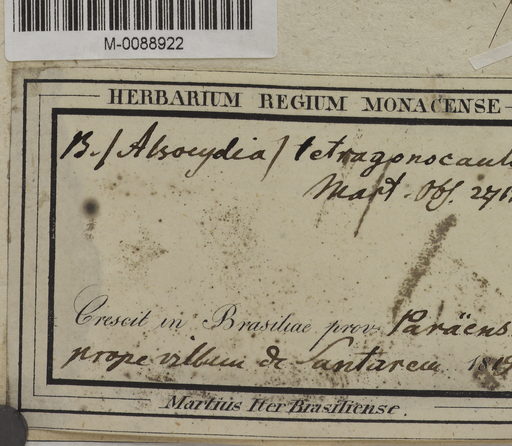 M-0088922
HERBARIUM REGIUM MONACENSE
B. / Alsocydia / tetragonocaul
Mart. Obs.
Crescit in Brasiliae prov. Paräens
prope villam de Santarem 1819
Martius Iter Brasiliense.